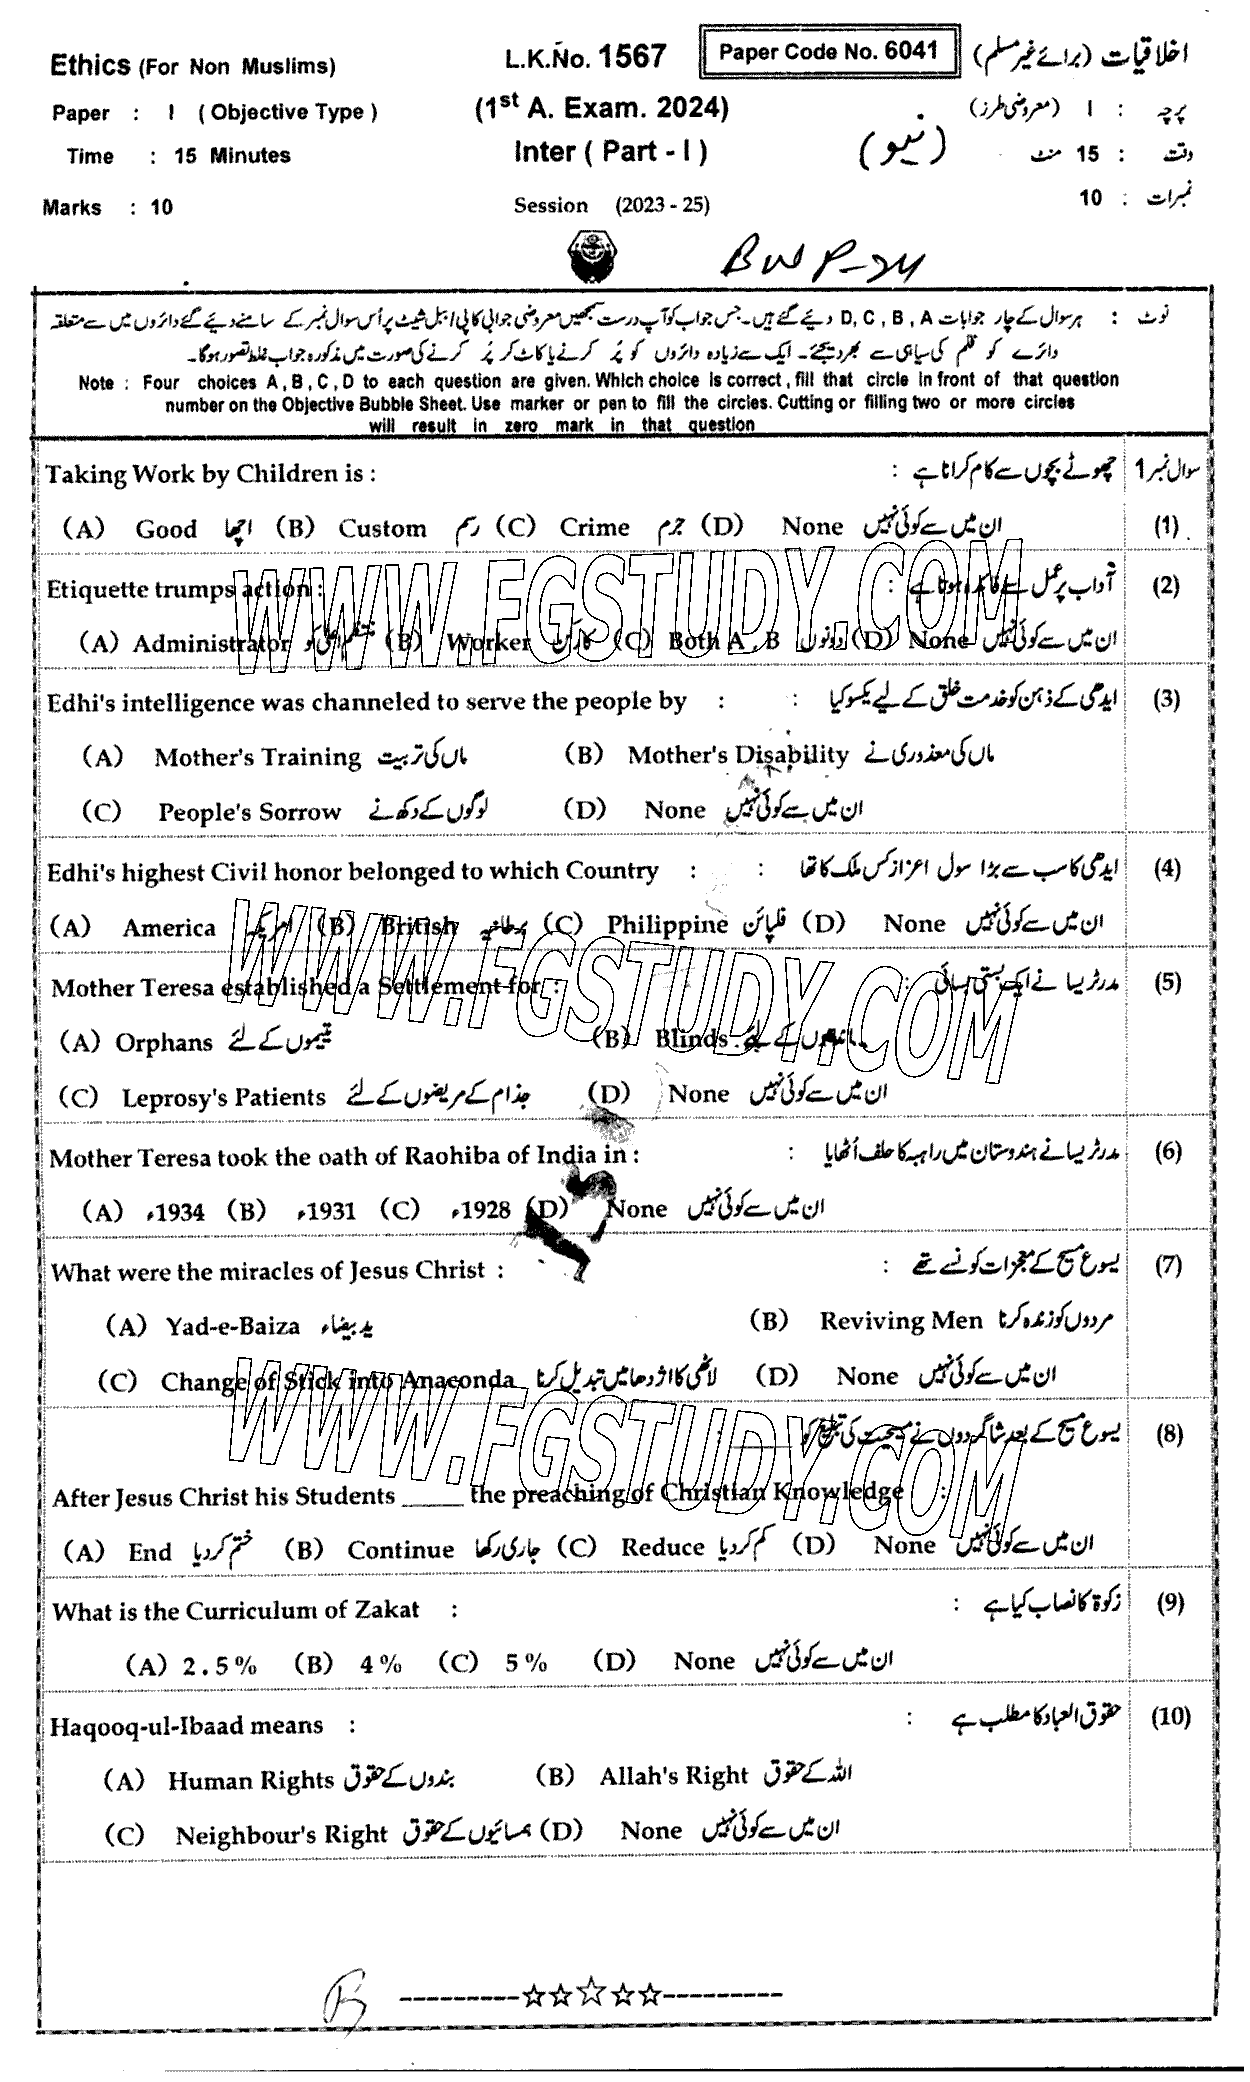 Ethics (For Non Muslims) L.K.No. 1567 Paper Code No. 6041 اخلاقیات (برائے غیر مسلم)
Paper : I ( Objective Type ) (1st A. Exam. 2024) پرچہ : I (معروضی طرز)
Time : 15 Minutes Inter ( Part - I ) (نیو) وقت : 15 منٹ
Marks : 10 Session (2023 - 25) نمبرات : 10
BWP-24
نوٹ : ہر سوال کے چار جوابات D, C, B, A دیئے گئے ہیں۔ جس جواب کو آپ درست سمجھیں معروضی جوابی کاپی / ببل شیٹ پر اُس سوال نمبر کے سامنے دیئے گئے دائروں میں سے متعلقہ
دائرے کو قلم کی سیاہی سے بھر دیجئے۔ ایک سے زیادہ دائروں کو پُر کرنے یا کاٹ کر پُر کرنے کی صورت میں مذکورہ جواب غلط تصور ہوگا۔
Note : Four choices A , B , C , D to each question are given. Which choice is correct , fill that circle in front of that question
number on the Objective Bubble Sheet. Use marker or pen to fill the circles. Cutting or filling two or more circles
will result in zero mark in that question
Taking Work by Children is : چھوٹے بچوں سے کام کرانا ہے : سوال نمبر 1
(A) Good اچھا (B) Custom رسم (C) Crime جرم (D) None ان میں سے کوئی نہیں (1)
Etiquette trumps action : آداب پر عمل سے فائدہ ہوتا ہے : (2)
(A) Administrator (B) Worker کارکن (C) Both A , B دونوں (D) None ان میں سے کوئی نہیں
Edhi's intelligence was channeled to serve the people by : ایدھی کے ذہن کو خدمت خلق کے لیے یکسو کیا : (3)
(A) Mother's Training ماں کی تربیت (B) Mother's Disability ماں کی معذوری نے
(C) People's Sorrow لوگوں کے دکھ نے (D) None ان میں سے کوئی نہیں
Edhi's highest Civil honor belonged to which Country : ایدھی کا سب سے بڑا سول اعزاز کس ملک کا تھا : (4)
(A) America امریکہ (B) British برطانیہ (C) Philippine فلپائن (D) None ان میں سے کوئی نہیں
Mother Teresa established a Settlement for : مدر ٹریسا نے ایک بستی بسائی : (5)
(A) Orphans یتیموں کے لئے (B) Blinds کے لئے
(C) Leprosy's Patients جذام کے مریضوں کے لئے (D) None ان میں سے کوئی نہیں
Mother Teresa took the oath of Raohiba of India in : مدر ٹریسا نے ہندوستان میں راہبہ کا حلف اُٹھایا : (6)
(A) 1934ء (B) 1931ء (C) 1928ء (D) None ان میں سے کوئی نہیں
What were the miracles of Jesus Christ : یسوع مسیح کے معجزات کونسے تھے : (7)
(A) Yad-e-Baiza ید بیضاء (B) Reviving Men مردوں کو زندہ کرنا
(C) Change of Stick into Anaconda لاٹھی کا اژدھا میں تبدیل کرنا (D) None ان میں سے کوئی نہیں
یسوع مسیح کے بعد شاگردوں نے مسیحیت کی تبلیغ کو _____ : (8)
After Jesus Christ his Students _____ the preaching of Christian Knowledge :
(A) End ختم کر دیا (B) Continue جاری رکھا (C) Reduce کم کر دیا (D) None ان میں سے کوئی نہیں
What is the Curriculum of Zakat : زکوٰۃ کا نصاب کیا ہے : (9)
(A) 2.5% (B) 4% (C) 5% (D) None ان میں سے کوئی نہیں
Haqooq-ul-Ibaad means : حقوق العباد کا مطلب ہے : (10)
(A) Human Rights بندوں کے حقوق (B) Allah's Right اللہ کے حقوق
(C) Neighbour's Right ہمسائیوں کے حقوق (D) None ان میں سے کوئی نہیں
WWW.FGSTUDY.COM
WWW.FGSTUDY.COM
WWW.FGSTUDY.COM